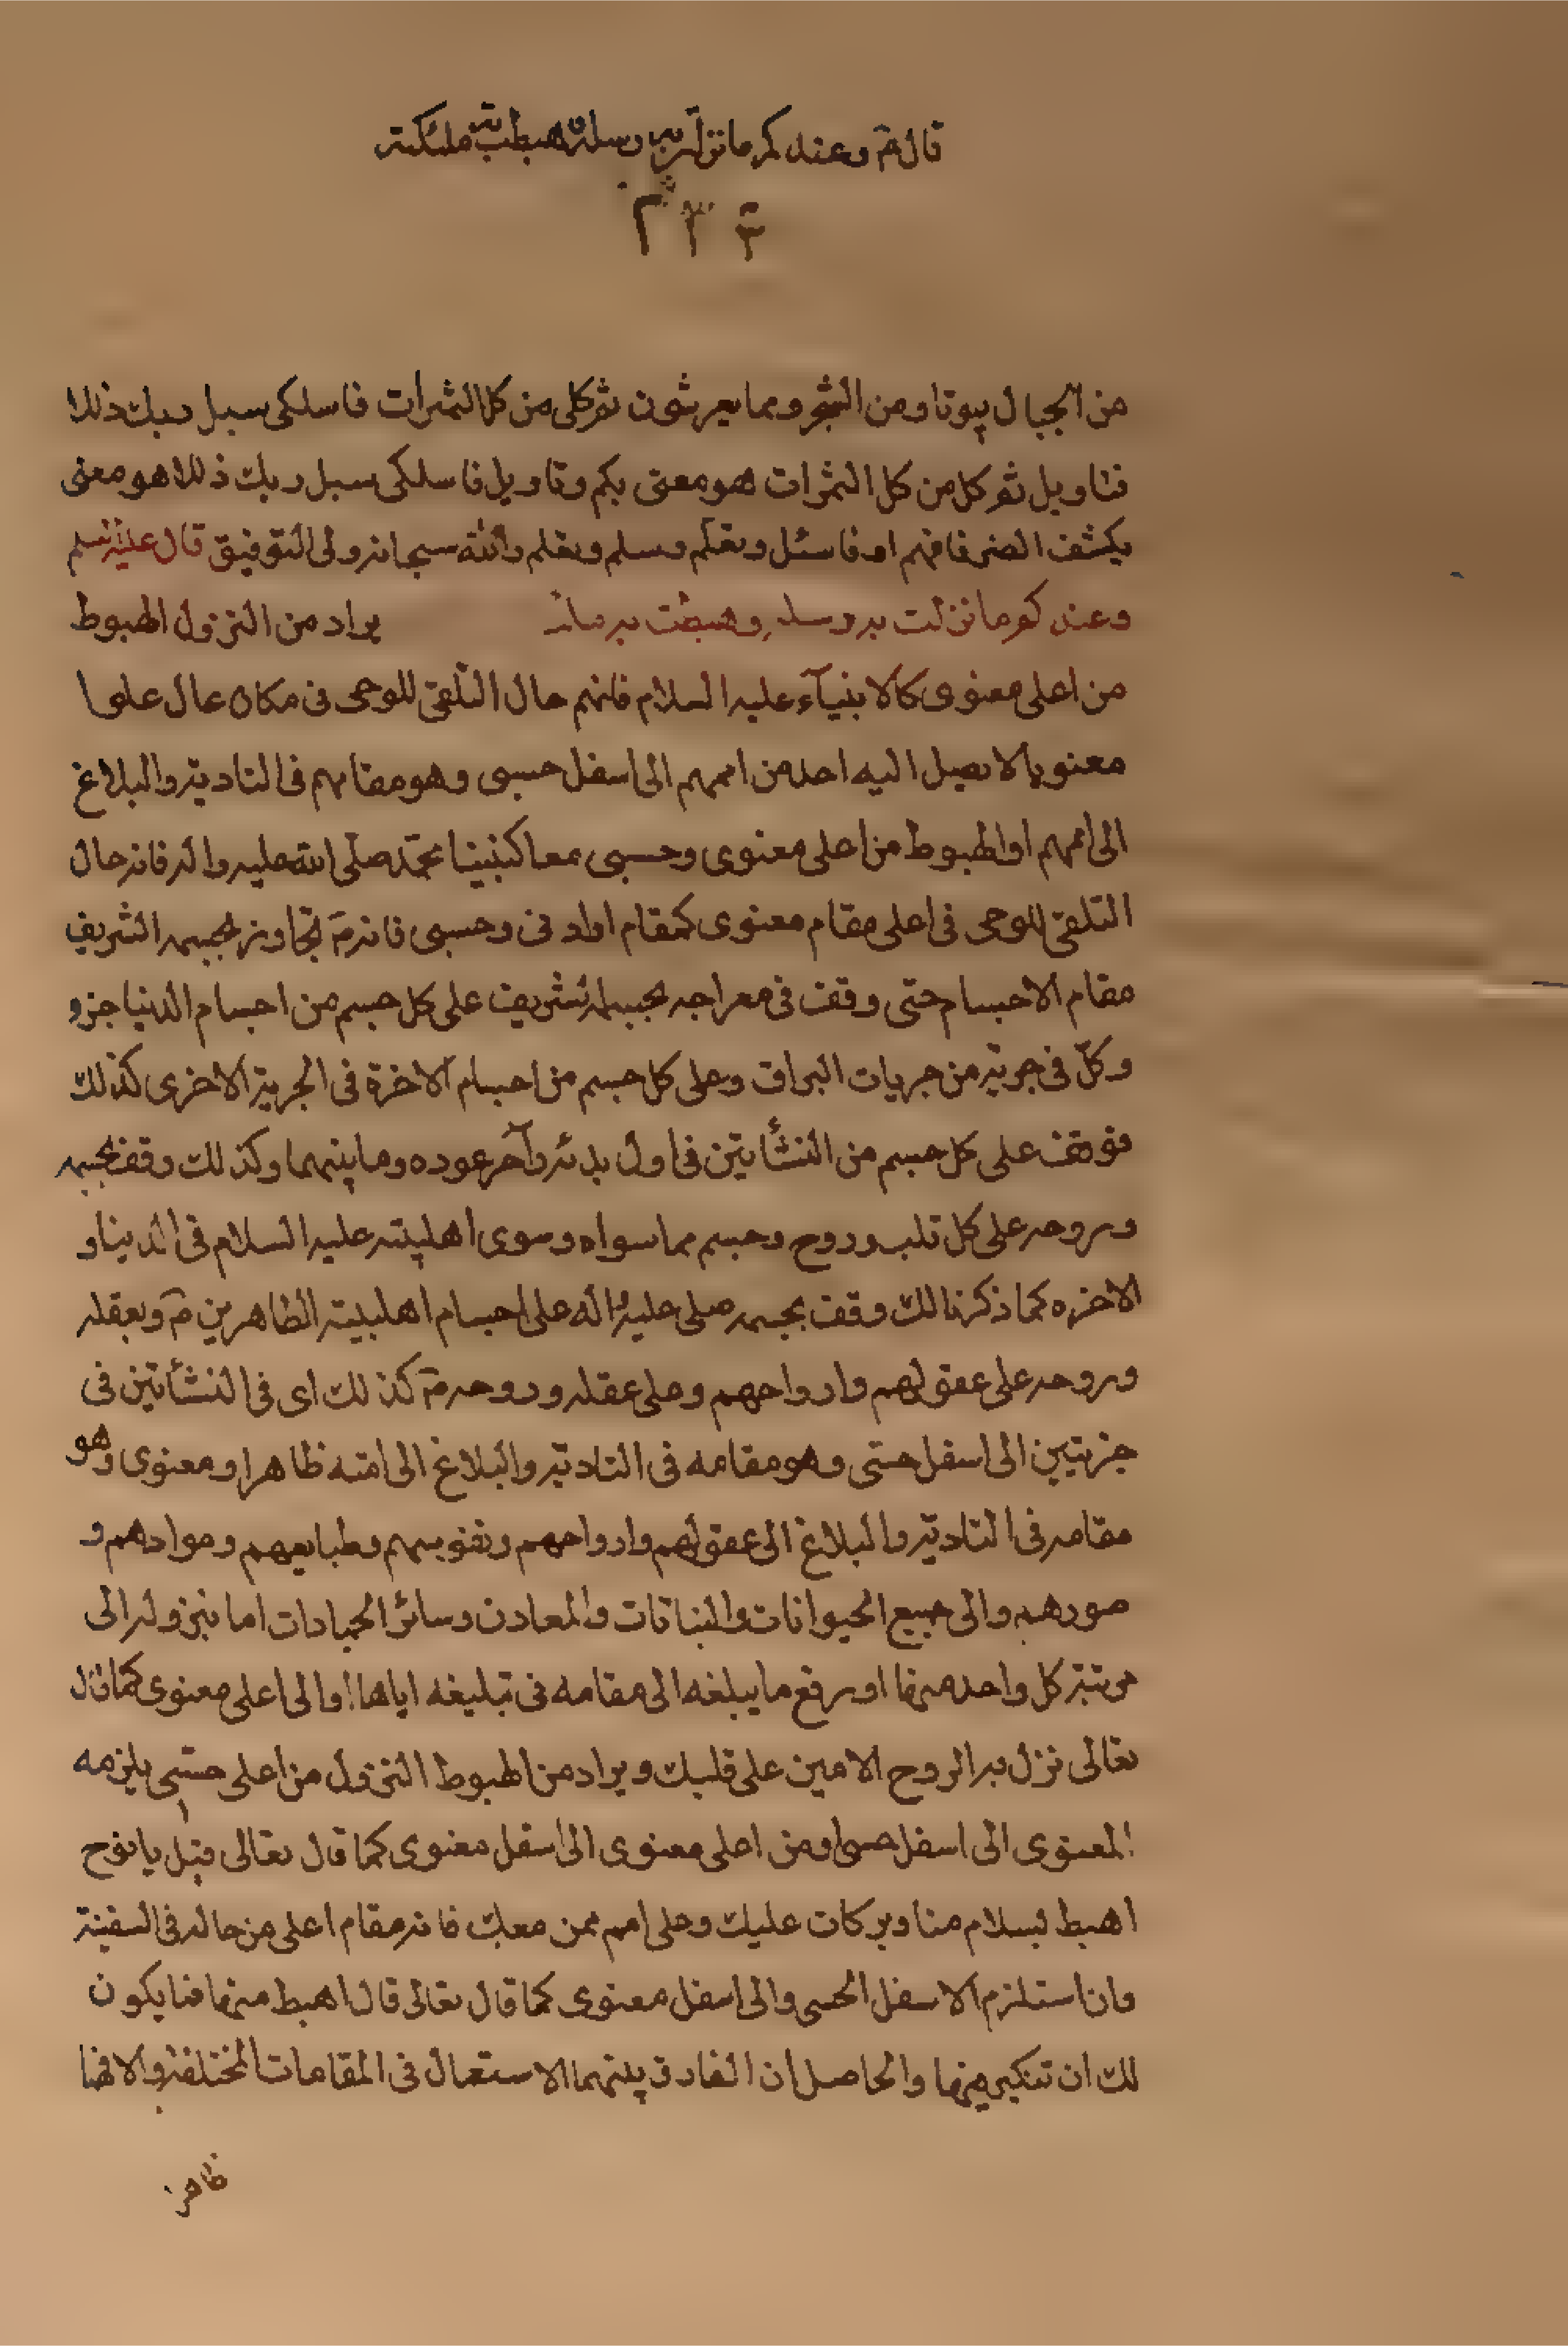 قال عم وعندكم ما نزلت به رسله وهبطت به ملئكته
من الجبال بيوتا ومن الشجر ومما يعرشون ثم كلى من كل الثمرات فاسلكى سبل ربك ذللا
فتاويل ثم كل من كل الثمرات هو معنى بكم وتاويل فاسلكى سبل ربك ذللا هو معنى
يكشف الضر فافهم او فاسئل وتعلم وسلم وتعلم والله سبحانه ولى التوفيق قال عليه السلم
وعندكم ما نزلت به رسله وهبطت به ملئكته يراد من النزول الهبوط
من اعلى معنوى كالانبيآء عليه السلام فانهم حال التلقى للوحى فى مكان عال علوا
معنويا لا يصل اليه احد من اممهم الى اسفل حسى وهو مقامهم فى التادية والبلاغ
الى اممهم او الهبوط من اعلى معنوى وحسى معا كنبينا محمد صلى الله عليه واله فانه حال
التلقى للوحى فى اعلى مقام معنوى كمقام او ادنى وحسى فانه ص تجاوز بجسمه الشريف
مقام الاجسام حتى وقف فى معراجه بجسمه الشريف على كل جسم من اجسام الدنيا جزو
وكل فى جرية من جريات البراق وعلى كل جسم من اجسام الاخرة فى الجرية الاخرى كذلك
فوقف على كل جسم من النشأتين فى اول بدئه وآخر عوده وما بينهما وكذلك وقف بجسمه
وروحه على كل قلب وروح وجسم مما سواه وسوى اهلبيته عليه السلام فى الدنيا و
الاخره كما ذكرنا لك وقف بجسمه صلى عليه واله على اجسام اهلبيته الطاهرين ع وبعقله
وروحه على عقولهم وارواحهم وعلى عقله وروحه ص كذلك اى فى النشأتين فى
جزيتين الى اسفل حسى وهو مقامه فى التادية والبلاغ الى امته ظاهرا ومعنوى وهو
مقامه فى التادية والبلاغ الى عقولهم وارواحهم ونفوسهم وطبايعهم وموادهم و
صورهم والى جميع الحيوانات والنباتات والمعادن وسائر الجمادات اما بنزوله الى
مرتبة كل واحد منها او برفع ما يبلغه الى مقامه فى تبليغه اياها او الى اعلى معنوى كما قال
تعالى نزل به الروح الامين على قلبك ويراد من الهبوط النزول من اعلى حسى يلزمه
المعنوى الى اسفل حسى او من اعلى معنوى الى اسفل معنوى كما قال تعالى قيل يا نوح
اهبط بسلام منا وبركات عليك وعلى امم ممن معك فانه مقام اعلى من حاله فى السفينة
وان استلزم الاسفل الحسى والى اسفل معنوى كما قال تعالى قال اهبط منها فما يكون
لك ان تتكبر فيها والحاصل ان الفارق بينهما الاستعمال فى المقامات المختلفة والا فهما
ظاهر